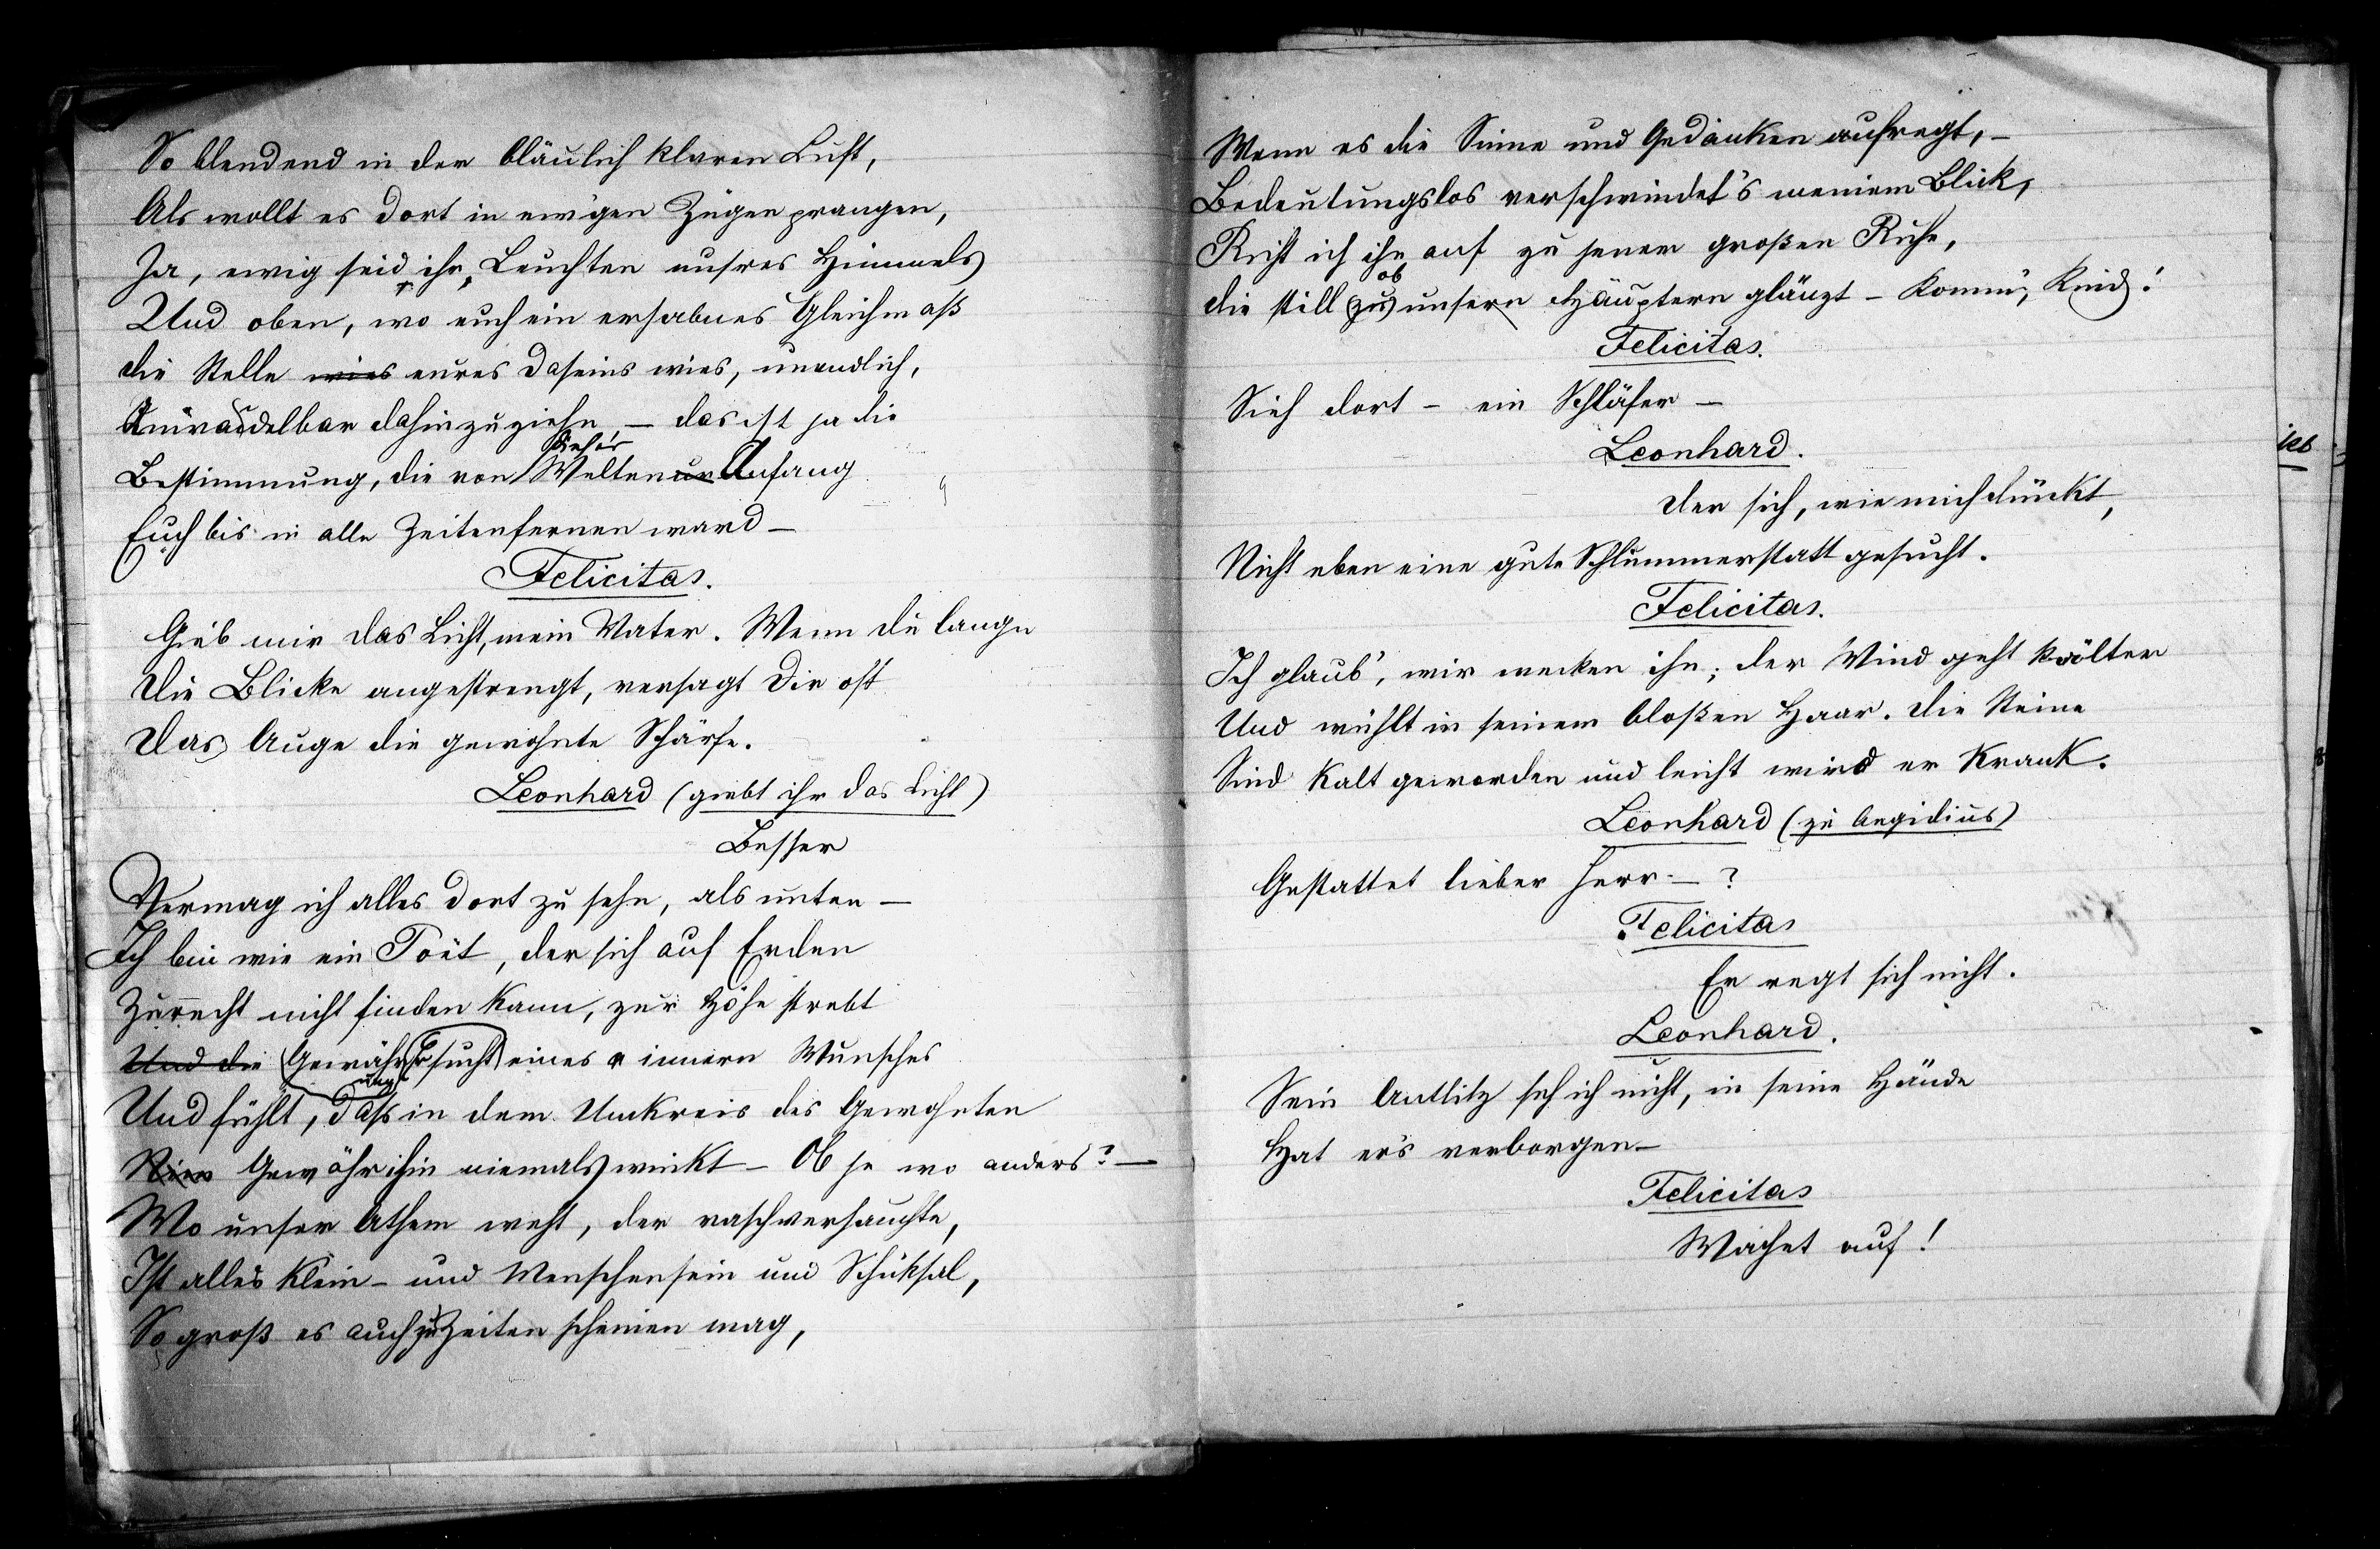 So blendend in der bläulich klaren Luft,
Als wollt es dort in ew'gen Zügen prangen,
Ja, ewig seid ihr, Leuchten unsres Himmels
Und oben, wo euch ein erhabnes Gleichmaß
die Stelle wies eures Daseins wies, unendlich,
Unwandelbar dahinzuziehn, – das ist ja die
Bestimmung, die von Welten Anfang
Euch bis in alle Zeitenfernen ward –
Felicitas.
Gieb mir das Licht, mein Vater. Wenn du lange
Die Blicke angestrengt, versagt Dir oft
Das Auge die gewohnte Schärfe.
Leonhard (giebt ihr das Licht)
Besser
Vermag ich alles dort zu sehn, als unten –
Ich bin wie ein Poët, der sich auf Erden
Zurecht nicht finden kann, zur Höhe strebt
Und die Gewähr sucht eines innern Wunsches
Und fühlt, daß in dem Umkreis des Gewohnten
Gewähr ihm niemals winkt – Ob je wo anders? –
Wo unser Athem weht, der raschverhauchte,
Ist alles klein – und Menschensein und Schicksal,
So groß es auch zu Zeiten scheinen mag,
Wenn es die Sinne und Gedanken aufregt, –
Bedeutungslos verschwindet's meinem Blick,
Richt ich ihn auf zu jener großen Ruhe,
die still zu ob unsern Häuptern glänzt – Komm', Kind!
Felicitas.
Sieh dort – ein Schläfer –
Leonhard.
Der sich, wie mich dünkt,
Nicht eben eine gute Schlummerstatt gesucht.
Felicitas.
Ich glaub', wir wecken ihn; der Wind geht kälter
Und wühlt in seinem bloßen Haar. Die Steine
Sind kalt geworden und leicht wird er krank.
Leonhard (zu Aegidius)
Gestattet lieber Herr – ?
Felicitas
Er regt sich nicht.
Leonhard.
Sein Antlitz seh ich nicht, in seine Hände
Hat er's verborgen –
Felicitas
Wachet auf!